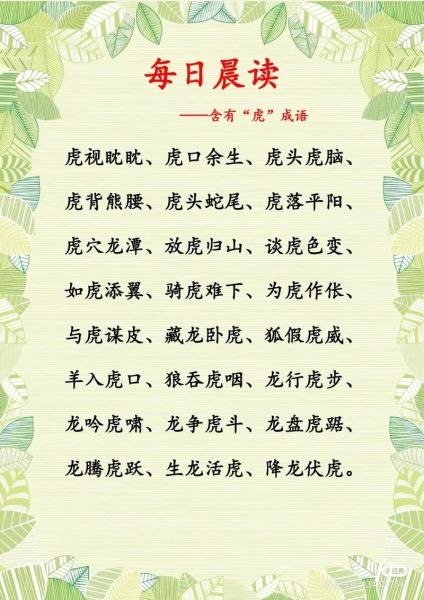 每日晨读
——含有“虎”成语
虎视眈眈、虎口余生、虎头虎脑、
虎背熊腰、虎头蛇尾、虎落平阳、
虎穴龙潭、放虎归山、谈虎色变、
如虎添翼、骑虎难下、为虎作伥、
与虎谋皮、藏龙卧虎、狐假虎威、
羊入虎口、狼吞虎咽、龙行虎步、
龙吟虎啸、龙争虎斗、龙盘虎踞、
龙腾虎跃、生龙活虎、降龙伏虎。
小红书